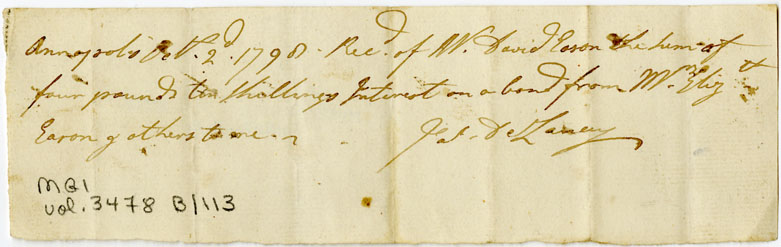 Annapolis Octr. 2d. 1798. Recd. of Mr. David Eason the sum of
four pounds ten Shillings Interest on a bond from Mrs. Elizth
Eason & others to me.
Jas. DeLancey
MG1
vol. 3478 B/113